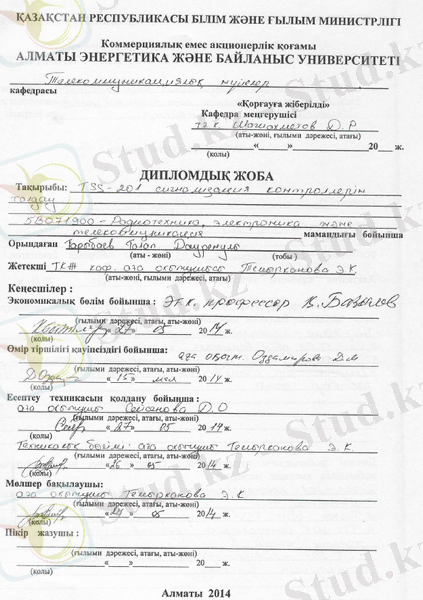 ҚАЗАҚСТАН РЕСПУБЛИКАСЫ БІЛІМ ЖӘНЕ ҒЫЛЫМ МИНИСТРЛІГІ
Коммерциялық емес акционерлік қоғамы
АЛМАТЫ ЭНЕРГЕТИКА ЖӘНЕ БАЙЛАНЫС УНИВЕРСИТЕТІ
Телекоммуникациялық жүйелер
кафедрасы
«Қорғауға жіберілді»
Кафедра меңгерушісі
Д. Р
(аты-жөні, ғылыми дәрежесі, атағы)
«   »   20   ж.
(қолы)
ДИПЛОМДЫҚ ЖОБА
Тақырыбы: TSS-201 сигнализация контроллерін
талдау
5В071900 - Радиотехника, электроника және
телекоммуникация мамандығы бойынша
Орындаған
(аты - жөні) (тобы)
Жетекші ТКЖ каф. аға оқытушысы Темырканова Э.К
(аты-жөні, ғылыми дәрежесі, атағы)
Кеңесшілер :
Экономикалық бөлім бойынша : э.ғ.к. профессор
(ғылыми дәрежесі, атағы, аты-жөні)
«27» 05 2014 ж.
(қолы)
Өмір тіршілігі қауіпсіздігі бойынша: аға оқыт.
(ғылыми дәрежесі, атағы, аты-жөні)
«15» мая 2014 ж.
(қолы)
Есептеу техникасын қолдану бойынша:
аға оқытушы Д.О
(ғылыми дәрежесі, атағы, аты-жөні)
«27» 05 2014 ж.
(қолы)
Техникалық бөлімі: аға оқытушы Темырканова Э.К
(ғылыми дәрежесі, атағы, аты-жөні)
«26» 05 2014 ж.
(қолы)
Мөлшер бақылаушы:
аға оқытушы Темырканова Э.К
(ғылыми дәрежесі, атағы, аты-жөні)
«27» 05 2014 ж.
(қолы)
Пікір жазушы :
(ғылыми дәрежесі, атағы, аты-жөні)
«   »   20   ж.
(қолы)
Алматы 2014
Stud.kz